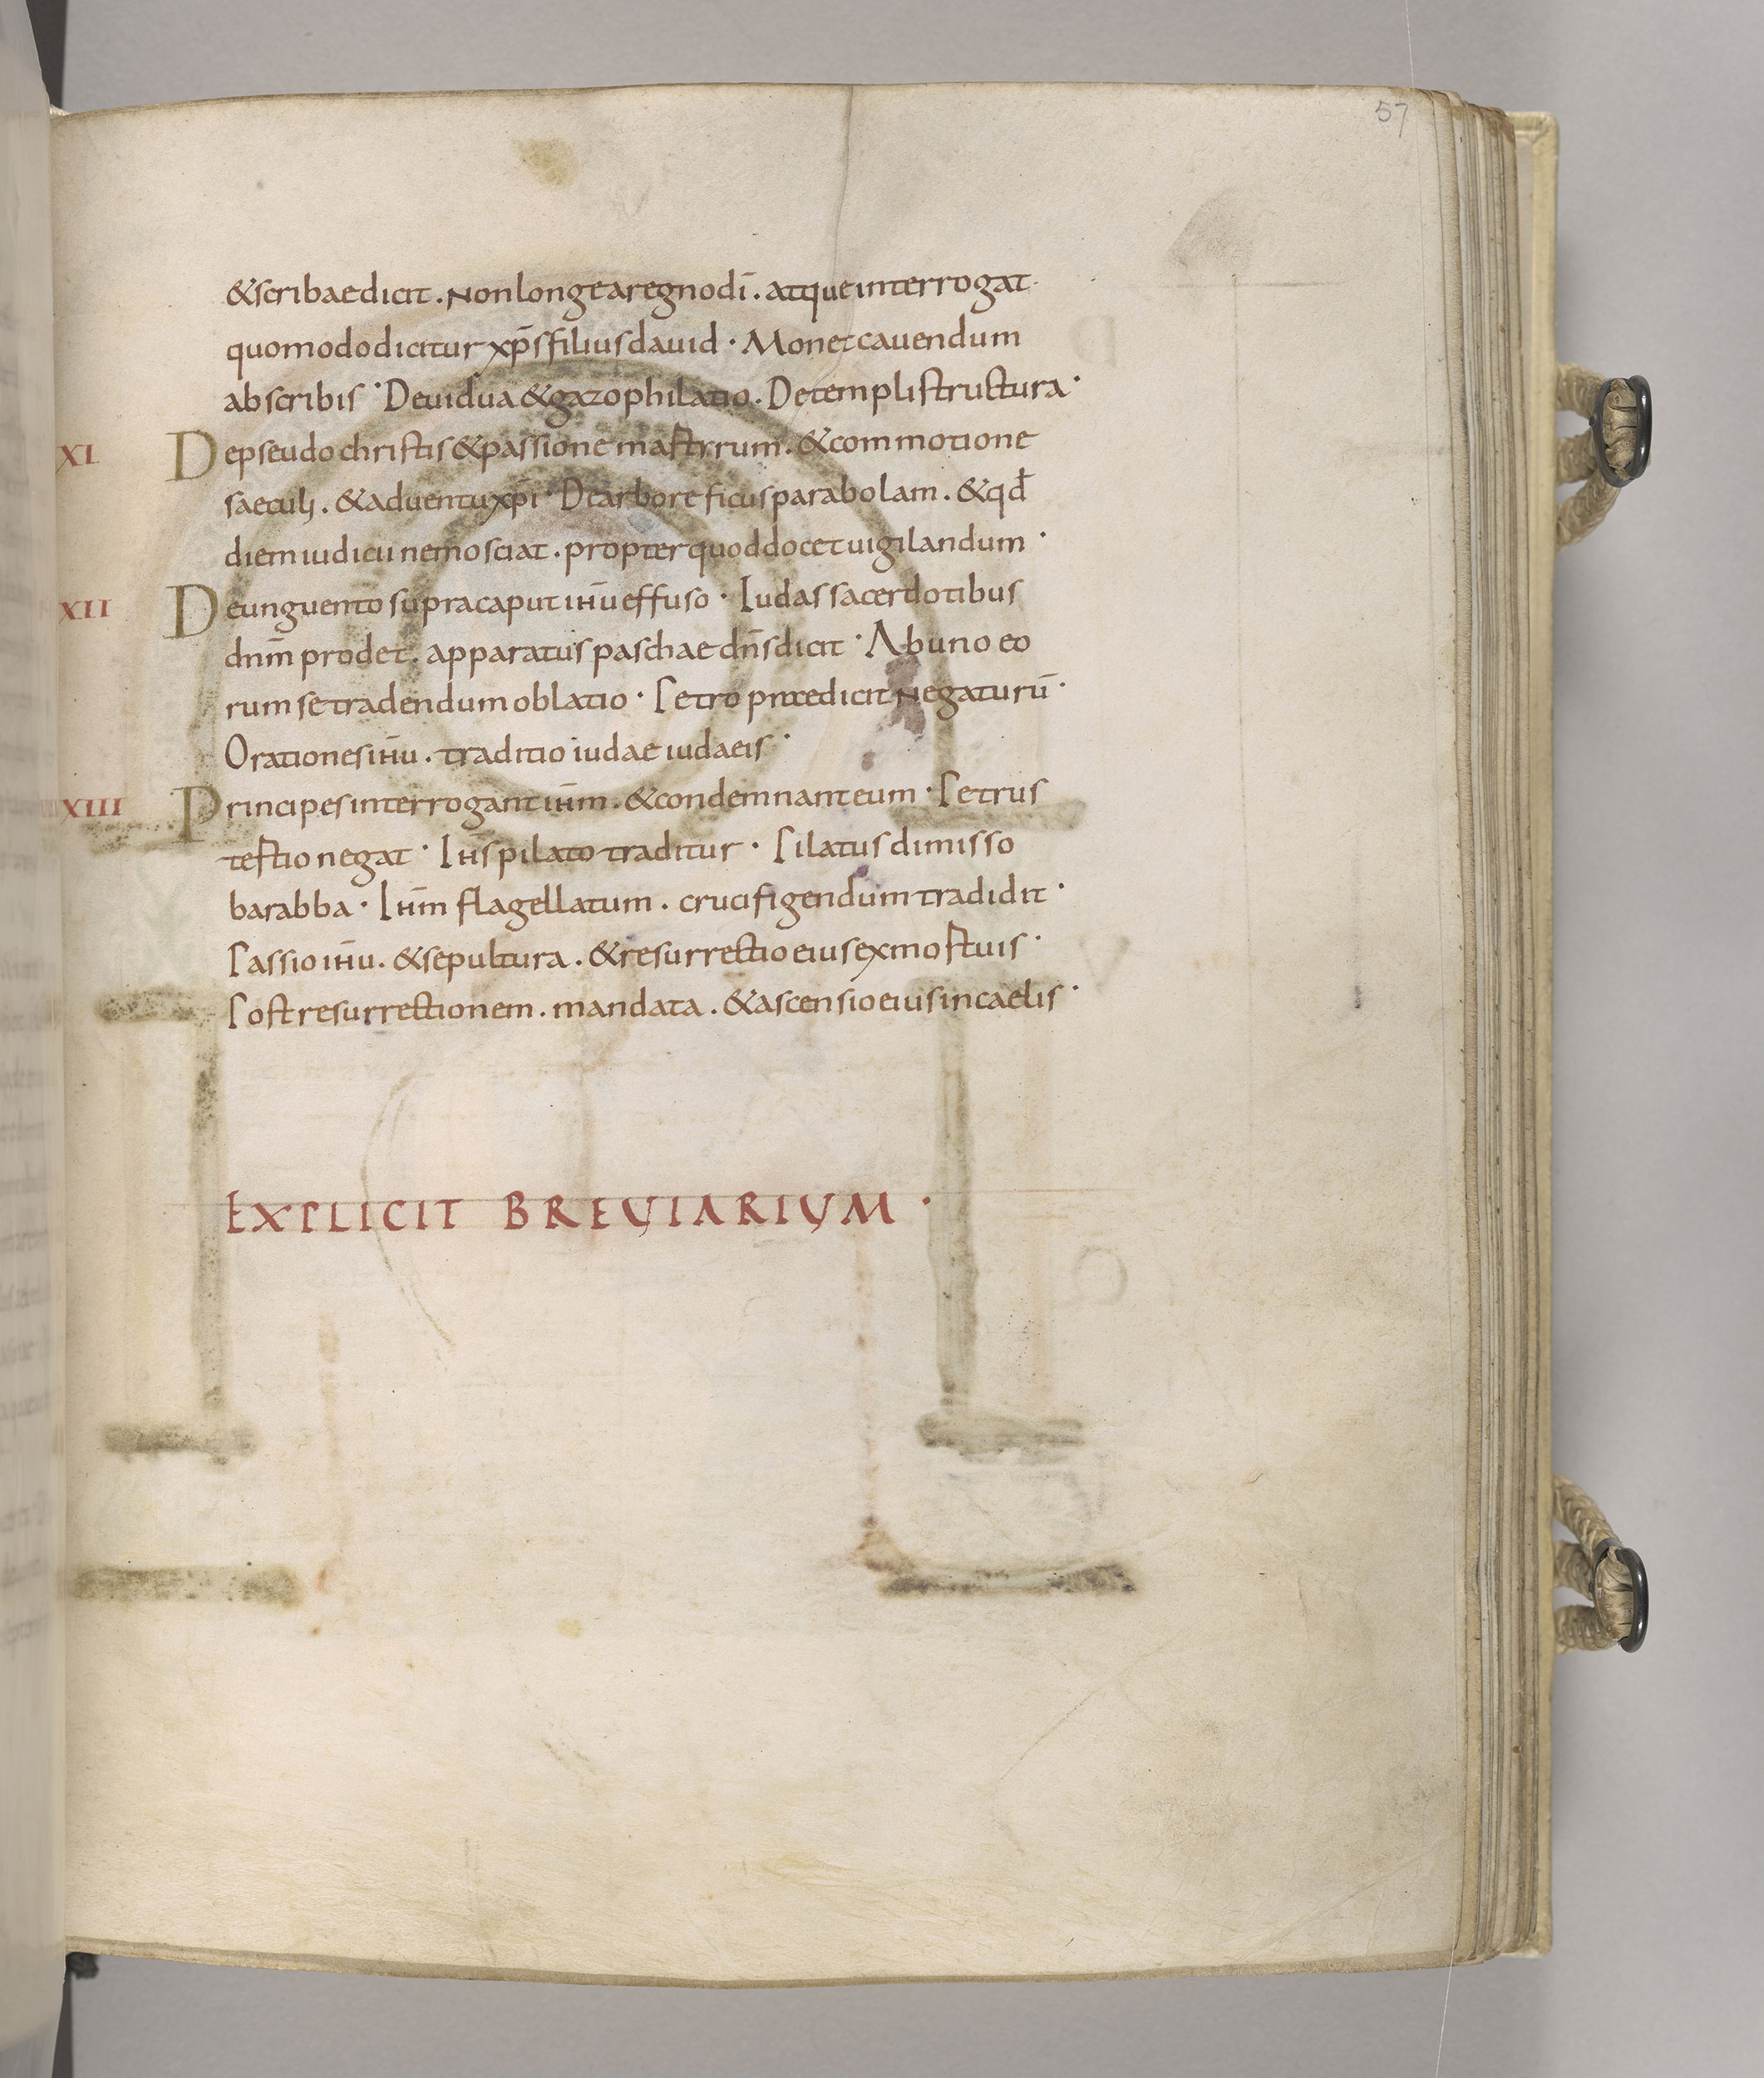 57
& scribae dicit . Non longe a regno dī . atque interrogat .
quomodo dicitur xp̄s filius dauid · Monet cauendum
ab scribis · De uidua & gazophilatio . De templi structura ·
XI De pseudo christis & passione mastrrum . & commotione
saeculi . & aduentu xp̄i · De arbore ficus parabolam . & qđ
diem iudicii nemo sciat . propter quod docet uigilandum ·
XII De unguento supra caput ihū effuso · Iudas sacerdotibus
dnm̄ prodet . apparatus paschae dn̄s dicit · Ab uno eo
rum se tradendum oblatio · Petro praedicit negaturū ·
Orationes ihū . traditio iudae iudaeis ·
XIII Principes interrogant ihm̄ . & condemnant eum · Petrus
testio negat · Ihs̄ pilato traditur · Pilatus dimisso
barabba · Ihm̄ flagellatum . crucifigendum tradidit ·
Passio ihū . & sepultura . & resurrectio eius ex mortuis ·
Post resurrectionem . mandata . & ascensio eius in caelis ·
EXPLICIT BREUIARIUM ·